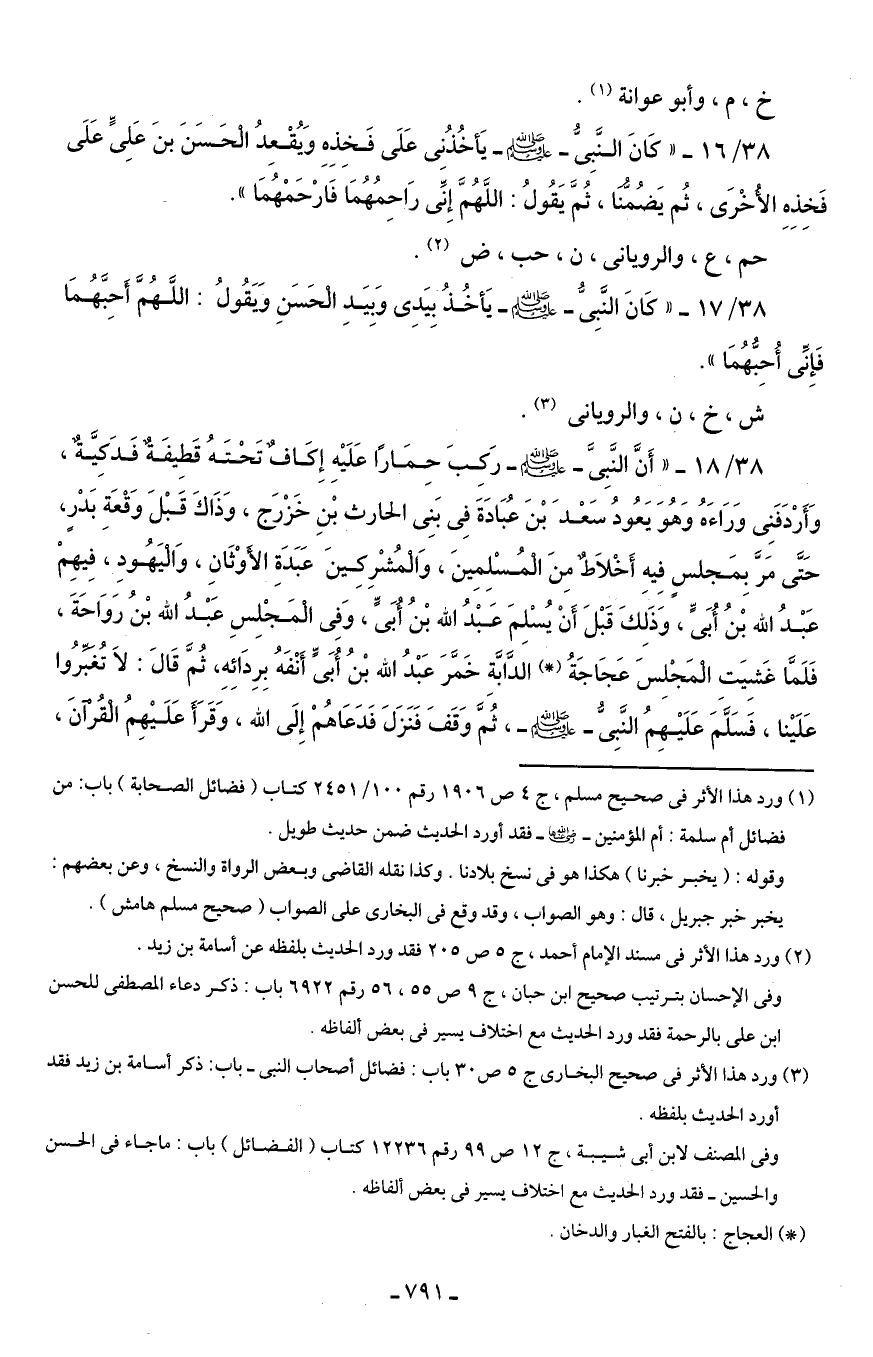 خ ، م ، وأبو عوانة (١) .
١٦/٣٨ ـ « كَانَ النَّبىُّ ـ ﷺ ـ يَأخُذُنِى عَلَى فَخِذِهِ وَيُقْعِدُ الْحَسَنَ بنَ عَلِىٍّ عَلَى
فَخِذِهِ الأُخْرَى ، ثُم يَضُمُّنَا ، ثُمَّ يَقُولُ : اللَّهُمَّ إِنِّى رَاحِمُهُمَا فَارْحَمْهُمَا ».
حم ، ع ، والرويانى ، ن ، حب ، ض (٢) .
١٧/٣٨ ـ « كَانَ النَّبىُّ ـ ﷺ ـ يَأخُذُ بِيَدِى وَبِيَدِ الْحَسَنِ وَيَقُولُ : اللَّهُمَّ أَحِبَّهُمَا
فَإِنِّى أُحِبُّهُمَا ».
ش ، خ ، ن ، والرويانى (٣) .
١٨/٣٨ ـ « أَنَّ النَّبىَّ ـ ﷺ ـ رَكِبَ حِمَارًا عَلَيْهِ إِكَافٌ تَحْتَهُ قَطِيفَةٌ فَدَكِيَّةٌ ،
وَأَرْدَفَنِى وَرَاءَهُ وَهُوَ يَعُودُ سَعْدَ بْنَ عُبَادَةَ فِى بَنِى الحارثِ بْنِ خَزْرَجِ ، وَذَاكَ قَبْلَ وَقْعَةِ بَدْرٍ،
حَتَّى مَرَّ بِمَجلِسٍ فِيهِ أَخْلَاطٌ مِنَ الْمُسْلِمِينَ ، وَالْمُشْرِكِينَ عَبَدَةِ الأَوْثَانِ ، وَالْيَهُودِ ، فِيهِمْ
عَبْدُ الله بْنُ أُبَىٍّ ، وَذَلِكَ قَبْلَ أَنْ يُسْلِمَ عَبْدُ الله بْنُ أُبَىٍّ ، وَفِى الْمَجْلِسِ عَبْدُ الله بْنُ رَوَاحَةَ ،
فَلَمَّا غَشِيَتِ الْمَجْلِسَ عَجَاجَةُ (*) الدَّابَّةِ خَمَّرَ عَبْدُ الله بْنُ أُبَىٍّ أَنْفَهُ بِرِدَائِهِ، ثُمَّ قَالَ : لاَ تُغَبِّرُوا
عَلَيْنا ، فَسَلَّمَ عَلَيْهِمُ النَّبىُّ ـ ﷺ ـ ، ثُمَّ وَقَفَ فَنَزَلَ فَدَعَاهُمْ إِلَى الله ، وَقَرَأَ عَلَيْهِمُ الْقُرْآنَ ،
(١) ورد هذا الأثر فى صحيح مسلم ، ج ٤ ص ١٩٠٦ رقم ١٠٠/ ٢٤٥١ كتاب ( فضائل الصحابة ) باب: من
فضائل أم سلمة : أم المؤمنين ـ رضي الله عنها ـ فقد أورد الحديث ضمن حديث طويل .
وقوله : ( يخبر خبرنا ) هكذا هو فى نسخ بلادنا . وكذا نقله القاضى وبعض الرواة والنسخ ، وعن بعضهم :
يخبر خبر جبريل ، قال : وهو الصواب ، وقد وقع فى البخارى على الصواب ( صحيح مسلم هامش ) .
(٢) ورد هذا الأثر فى مسند الإمام أحمد ، ج ٥ ص ٢٠٥ فقد ورد الحديث بلفظه عن أسامة بن زيد .
وفى الإحسان بترتيب صحيح ابن حبان ، ج ٩ ص ٥٥ ، ٥٦ رقم ٦٩٢٢ باب : ذكر دعاء المصطفى للحسن
ابن على بالرحمة فقد ورد الحديث مع اختلاف يسير فى بعض ألفاظه .
(٣) ورد هذا الأثر فى صحيح البخارى ج ٥ ص ٣٠ باب : فضائل أصحاب النبى ـ باب: ذكر أسامة بن زيد فقد
أورد الحديث بلفظه .
وفى المصنف لابن أبى شيبة ، ج ١٢ ص ٩٩ رقم ١٢٢٣٦ كتاب ( الفضائل ) باب : ماجاء فى الحسن
والحسين ـ فقد ورد الحديث مع اختلاف يسير فى بعض ألفاظه .
(*) العجاج : بالفتح الغبار والدخان .
ـ ٧٩١ ـ